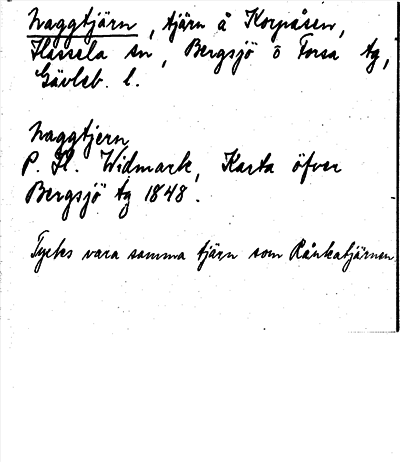 Naggtjärn, tjärn å Korpåsen,
Hassela sn, Bergsjö o Forsa tg,
Gävleb. l.
Naggtjern
P. H. Widmark, Karta öfver
Bergsjö tg 1848.
Tycks vara samma tjärn som Rånkatjärnen.